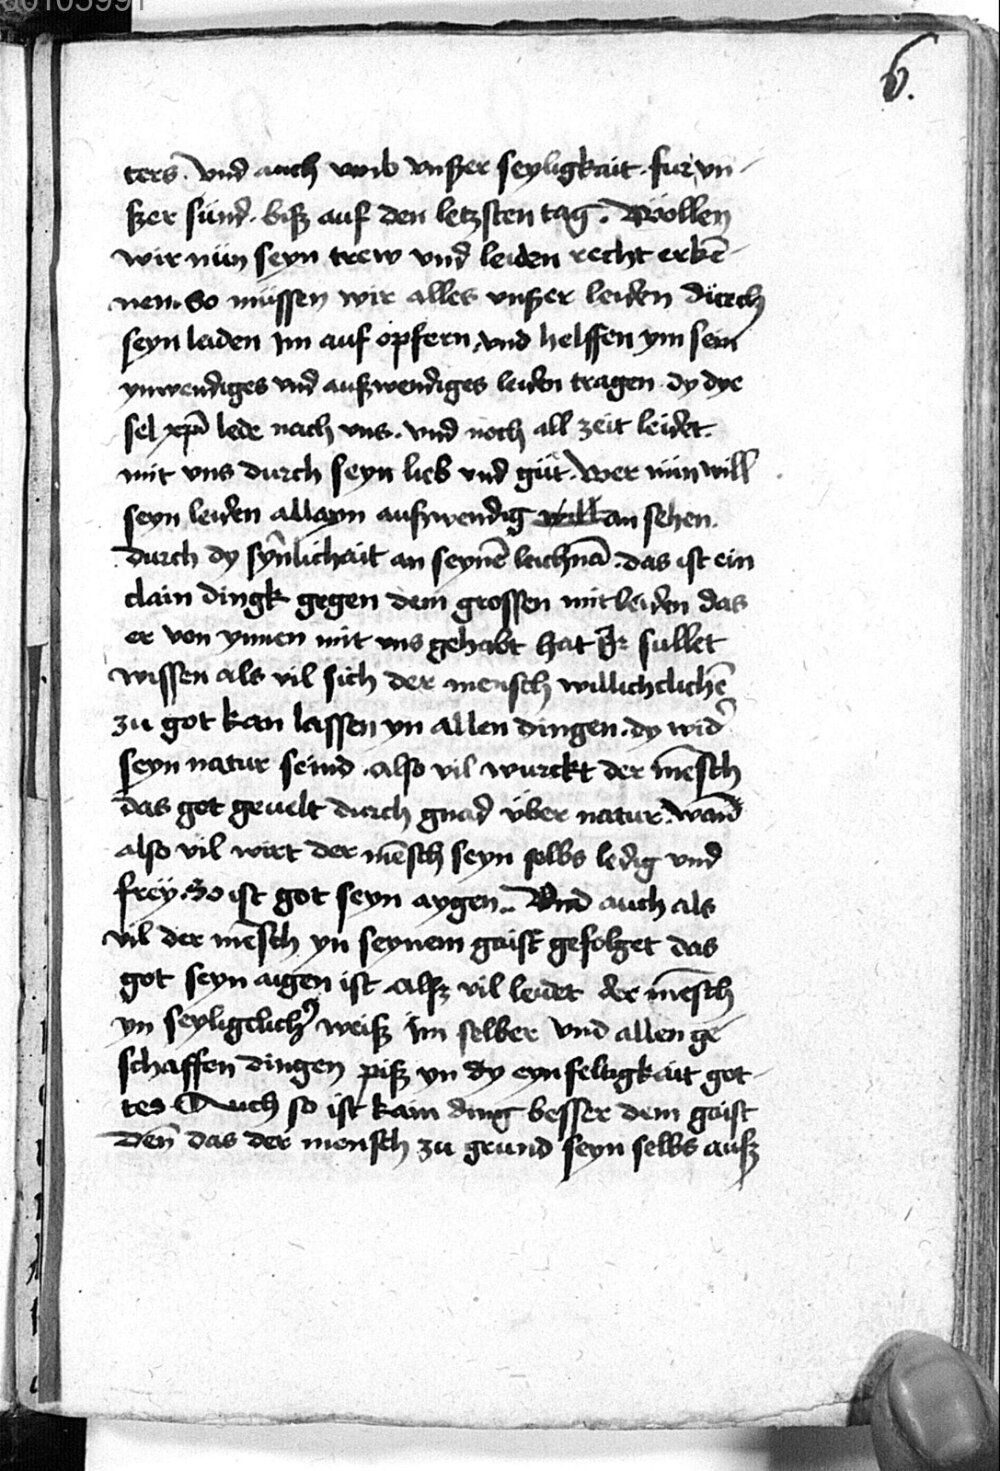 6.
ters. vnd auch vmb vnßer seyligkait. fur vn-
ßer sünd. biß auf den letzsten tag. Wöllen
wir nün seyn trew vnd leiden recht erkē-
nen. So müssen wir alles vnßer leiden dürch
seyn leiden jm auf opfern, vnd helffen ym sein
ynwendiges vnd außwendiges leiden tragen. dy dye
sel xp̄i lede nach vns. vnd noch all zeit leidet.
mit vns durch seyn lieb vnd güt. Wer nün will
seyn leiden allayn außwendig will an sehen.
durch dy synlichait an seynē leichnā. das ist ein
clain dingk gegen dem grossen mitleiden das
er von ynnen mit vns gehabt hat jr sullet
wissen als vil sich der mensch willichclichē
zu got kan lassen yn allen dingen. dy wid᷑
seyn natur seind. also vil wurckt der mēsch
das got geuelt durch gnad über natur. wañ
also vil wirt der mēsch seyn selbs ledig vnd
freÿ. So ist got seyn aygen.. Vnd auch als
vil der mēsch yn seynem gaist gefolget das
got seyn aigen ist. Alß vil leidet der mēsch
yn seyligclichꝰ weiß im selber vnd allen ge
schaffen dingen piß yn dy eynfeltigkait got-
tes. Auch so ist kain ding besser dem gaist
Den̄ das der mensch zu grund seyn selbs auß